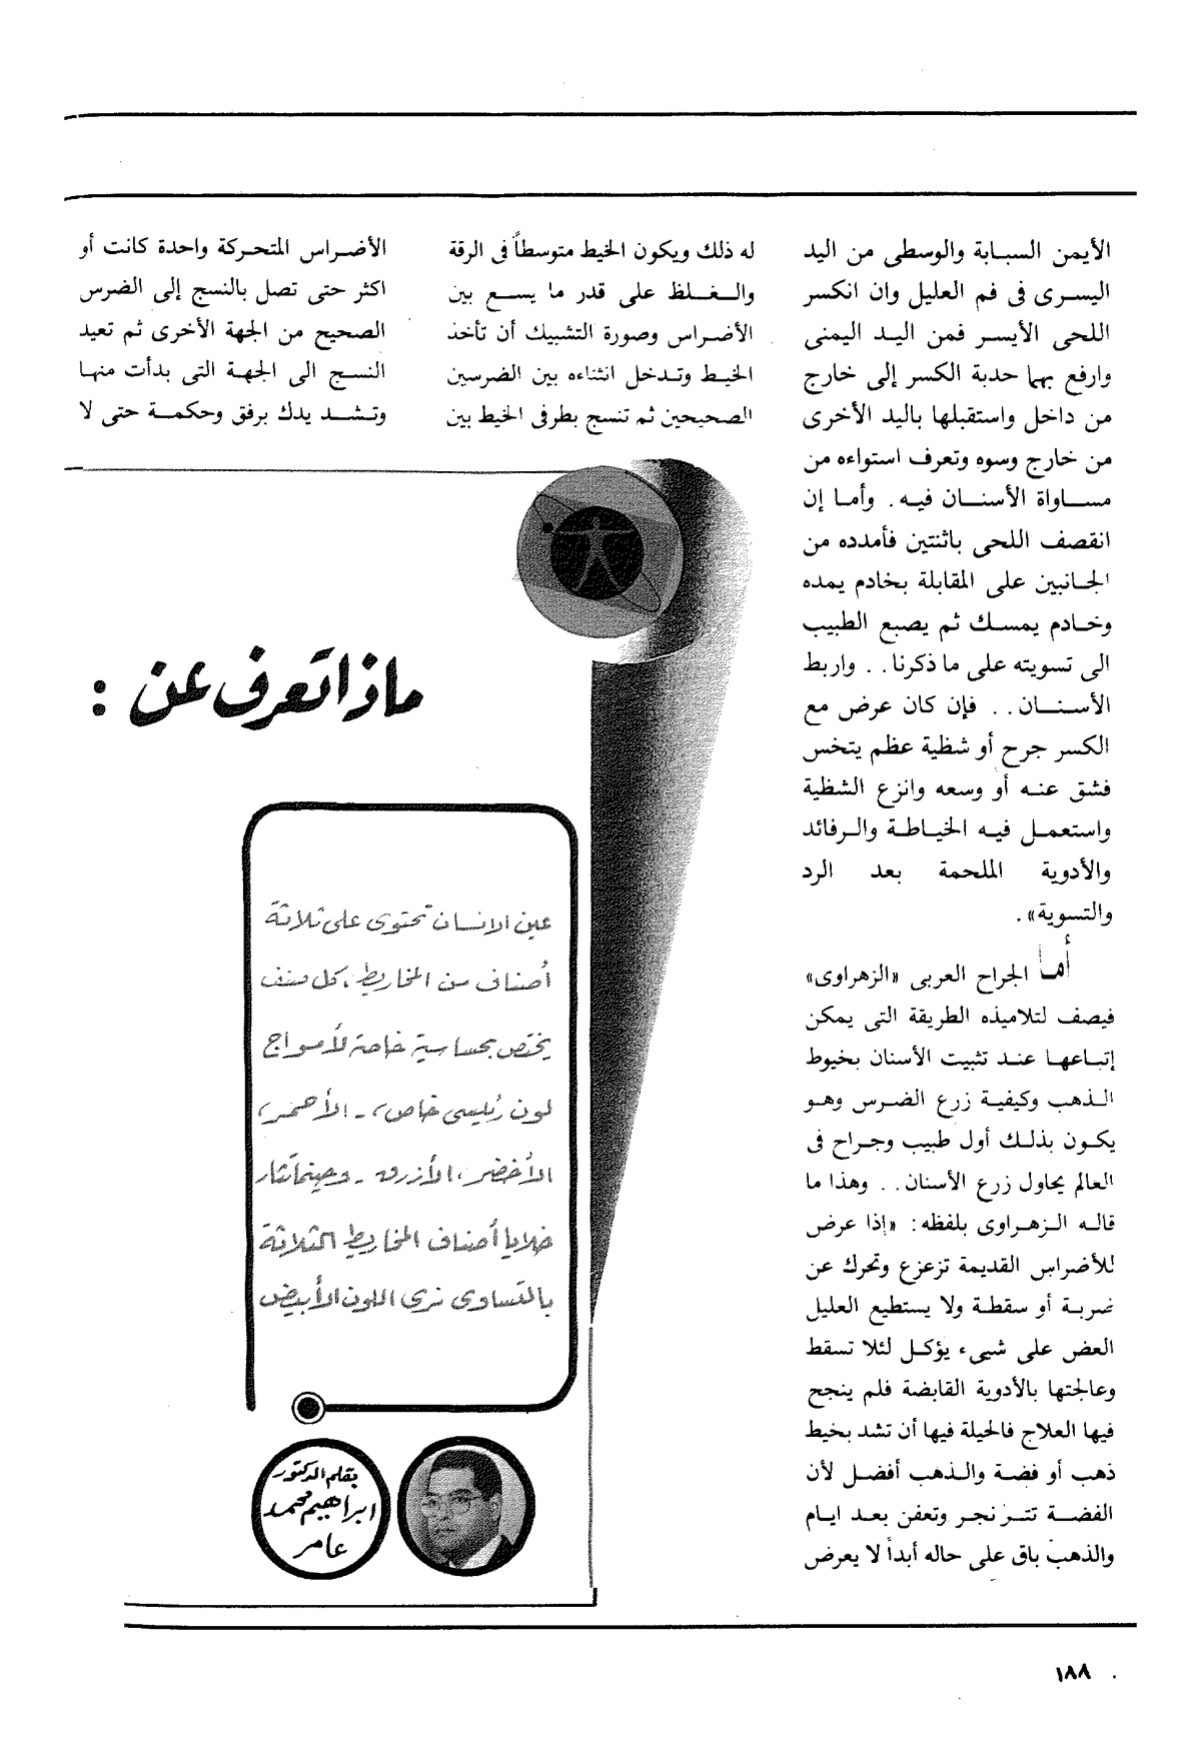 الأيمن السبابة والوسطى من اليد
اليسرى فى فم العليل وان انكسر
اللحى الأيسر فمن اليد اليمنى
وارفع بهما حدبة الكسر إلى خارج
من داخل واستقبلها باليد الأخرى
من خارج وسوه وتعرف استواءه من
مساواة الأسنان فيه. وأما إن
انقصف اللحى باثنتين فأمدده من
الجانبين على المقابلة بخادم يمده
وخادم يمسك ثم يصبع الطبيب
الى تسويته على ما ذكرنا.. واربط
الأسنان.. فإن كان عرض مع
الكسر جرح أو شظية عظم يتخس
فشق عنه أو وسعه وانزع الشظية
واستعمل فيه الخياطة والرفائد
والأدوية الملحمة بعد الرد
والتسوية».
أما الجراح العربى «الزهراوى»
فيصف لتلاميذه الطريقة التى يمكن
إتباعها عند تثبيت الأسنان بخيوط
الذهب وكيفية زرع الضرس وهو
يكون بذلك أول طبيب وجراح فى
العالم يحاول زرع الأسنان.. وهذا ما
قاله الزهراوى بلفظه: «إذا عرض
للأضراس القديمة تزعزع وتحرك عن
ضربة أو سقطة ولا يستطيع العليل
العض على شيىء يؤكل لئلا تسقط
وعالجتها بالأدوية القابضة فلم ينجح
فيها العلاج فالحيلة فيها أن تشد بخيط
ذهب أو فضة والذهب أفضل لأن
الفضة تتزنجر وتعفن بعد ايام
والذهب باق على حاله أبداً لا يعرض
له ذلك ويكون الخيط متوسطاً فى الرقة
والغلظ على قدر ما يسع بين
الأضراس وصورة التشبيك أن تأخذ
الخيط وتدخل انثناءه بين الضرسين
الصحيحين ثم تنسج بطرفى الخيط بين
الأضراس المتحركة واحدة كانت أو
اكثر حتى تصل بالنسج إلى الضرس
الصحيح من الجهة الأخرى ثم تعيد
النسج الى الجهة التى بدأت منها
وتشد يدك برفق وحكمة حتى لا
ماذا تعرف عن :
عين الانسان تحتوى على ثلاثة
أصناف من المخاريط، كل صنف
يختص بحساسية خاصة لأمواج
لون رئيسى خاص، - الأحمر،
الأخضر، الأزرق - وحينما تثار
خلايا أصناف المخاريط الثلاثة
بالتساوى نرى اللون الأبيض
بقلم الدكتور
ابراهيم محمد
عامر
١٨٨